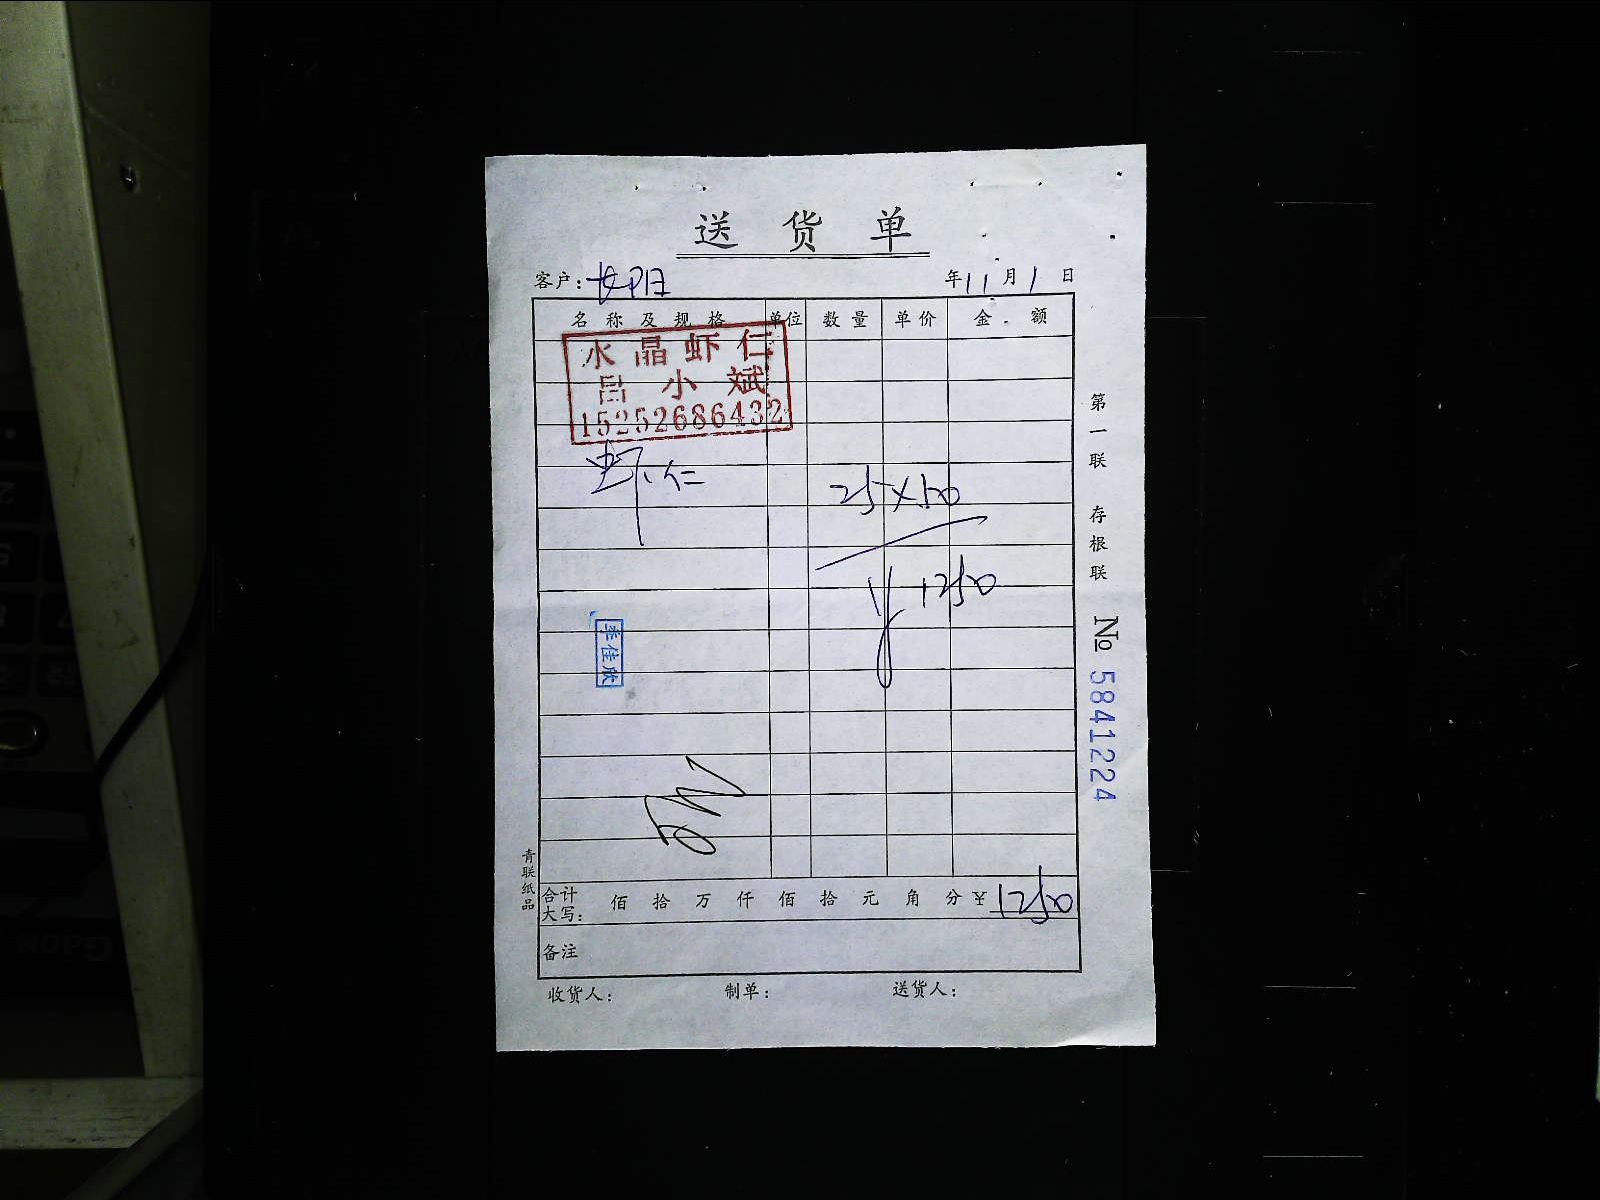 送货单
客户：
年 11 月 1 日
名称及规格 单位 数量 单价 金额
水晶虾仁
吕小斌
15252686432
虾仁 25×50
¥1250
李佳欣
合计大写： 佰 拾 万 仟 佰 拾 元 角 分 ¥ 1250
备注
收货人： 制单： 送货人：
第一联 存根联
№ 5841224
青联纸品